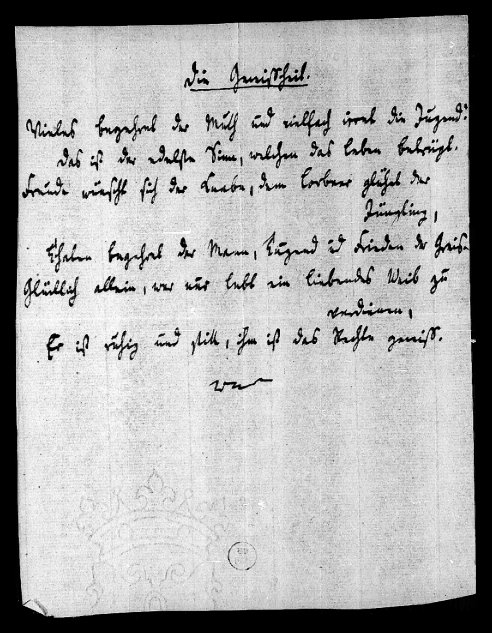 Die Gewissheit.
Vieles begehret der Muth und vielfach irret die Jugend:
Das ist der edelste Sinn, welchen das Leben betrügt.
Freude wünscht sich der Knabe, dem Lorbeer glühet der
Jüngling,
Thaten begehret der Mann, Tugend u Frieden der Greis.
Glücklich allein, wer nur lebt ein liebendes Weib zu
verdienen,
Er ist ruhig und still, ihm ist das Rechte gewiss.